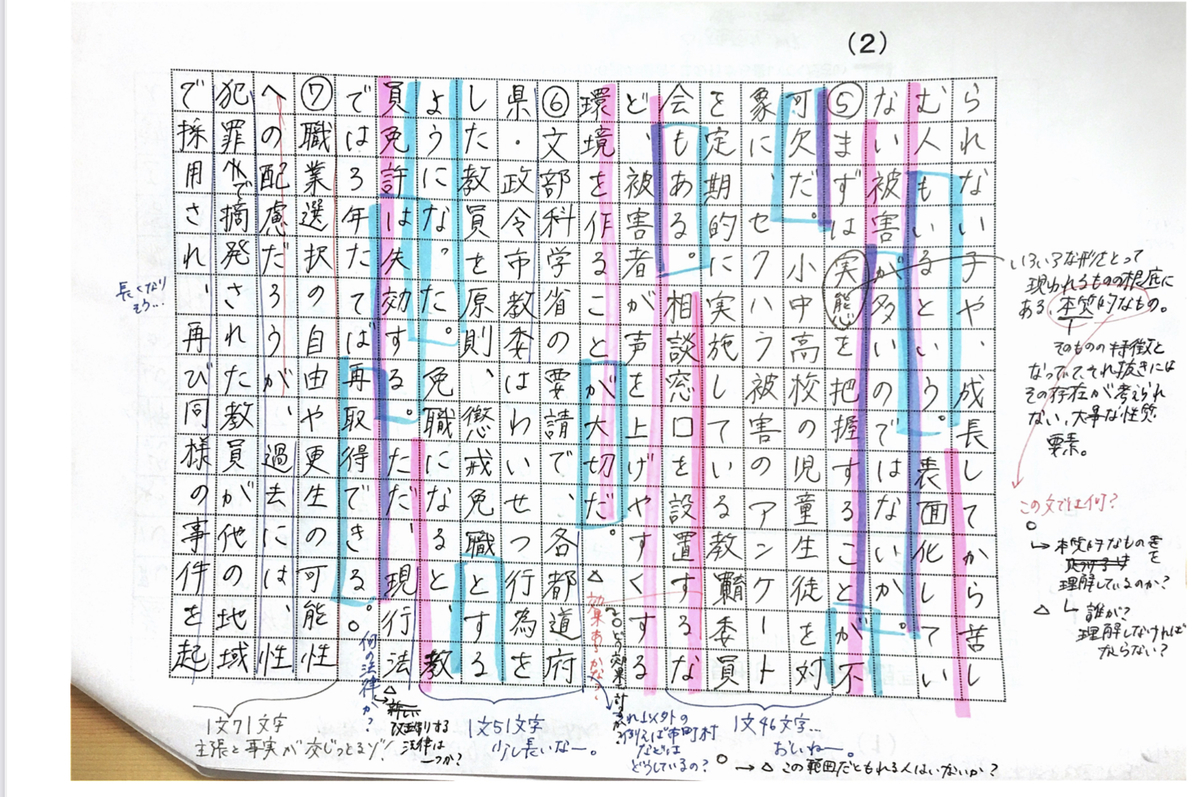 (2)
られない子や、成長してから苦し
む人もいるという。表面化してい
ない被害が多いのではないか。
⑤まずは実態を把握することが不
可欠だ。小中高校の児童生徒を対
象に、セクハラ被害のアンケート
を定期的に実施している教育委員
会もある。相談窓口を設置するな
ど被害者が声を上げやすくする
環境を作ることが大切だ。
⑥文部科学省の要請で、各都道府
県・政令市教委はわいせつ行為を
した教員を原則、懲戒免職とする
ようになった。免職になると、教
員免許は失効する。ただ、現行法
では3年たてば再取得できる。
⑦職業選択の自由や更生の可能性
への配慮だろうが、過去には、性
犯罪で摘発された教員が他の地域
で採用され、再び同様の事件を起
いろいろな形をとって
現われるものの根底に
ある、本質的なもの。
そのものの特徴と
なっていてそれ抜きには
その存在が考えられ
ない、大事な性質
要素。
この文では何?
○
→本質的なものを
理解しているのか?
△
誰が?
理解しなければ
ならない?
1文46文字…
おしいねー。
○→△この範囲だともれる人はいないか?
それ以外の
例えば市町村
などは
どうしているの?
△効果あるかな?
1文51文字
少し長いなー。
何の法律が?
△
改正する
法律は
一つか?
1文71文字
主張と事実が交じっとるゾ!
長くなり
そう…